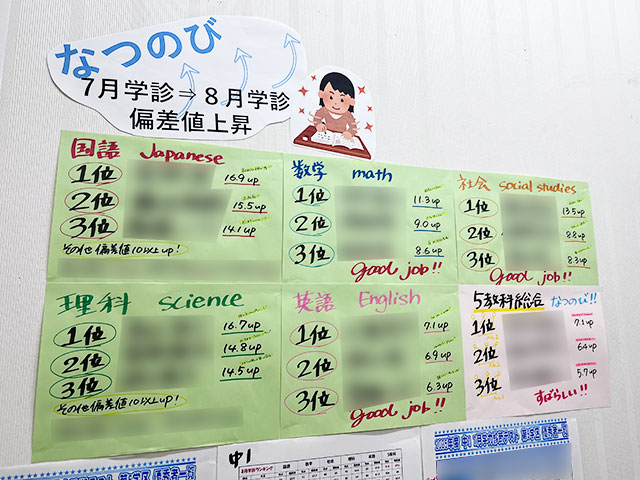 なつのび
7月学診⇒8月学診
偏差値上昇
国語 Japanese
1位 16.9up
2位 15.5up
3位 14.1up
その他偏差値10以上up!
数学 math
1位 11.3up
2位 9.0up
3位 8.6up
good job!!
社会 social studies
1位 13.5up
2位 8.8up
3位 8.3up
good job!!
理科 science
1位 16.7up
2位 14.8up
3位 14.5up
その他偏差値10以上up!
英語 English
1位 7.1up
2位 6.9up
3位 6.3up
good job!!
5教科総合 なつのび!!
1位 7.1up
2位 6.4up
3位 5.7up
すばらしい!!
中1